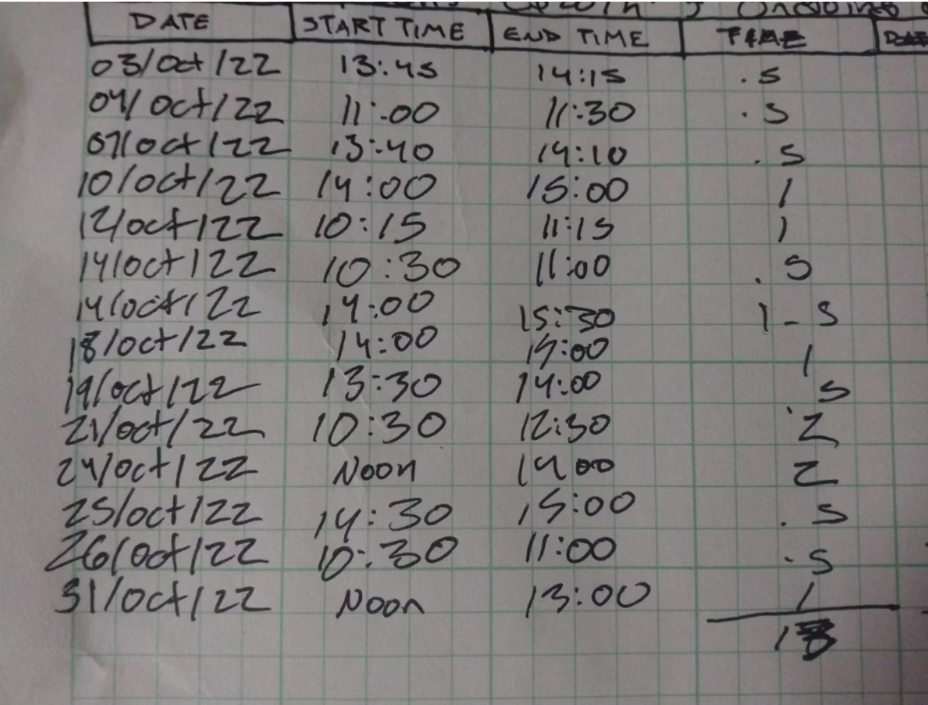 DATE START TIME END TIME TIME
03/Oct/22 13:45 14:15 .5
04/Oct/22 11:00 11:30 .5
07/Oct/22 13:40 14:10 .5
10/Oct/22 14:00 15:00 1
12/Oct/22 10:15 11:15 1
14/Oct/22 10:30 11:00 .5
14/Oct/22 14:00 15:30 1-5
18/Oct/22 14:00 15:00 1
19/Oct/22 13:30 14:00 .5
21/Oct/22 10:30 12:30 2
24/Oct/22 Noon 14 00 2
25/Oct/22 14:30 15:00 .5
26/Oct/22 10:30 11:00 .5
31/Oct/22 Noon 13:00 1